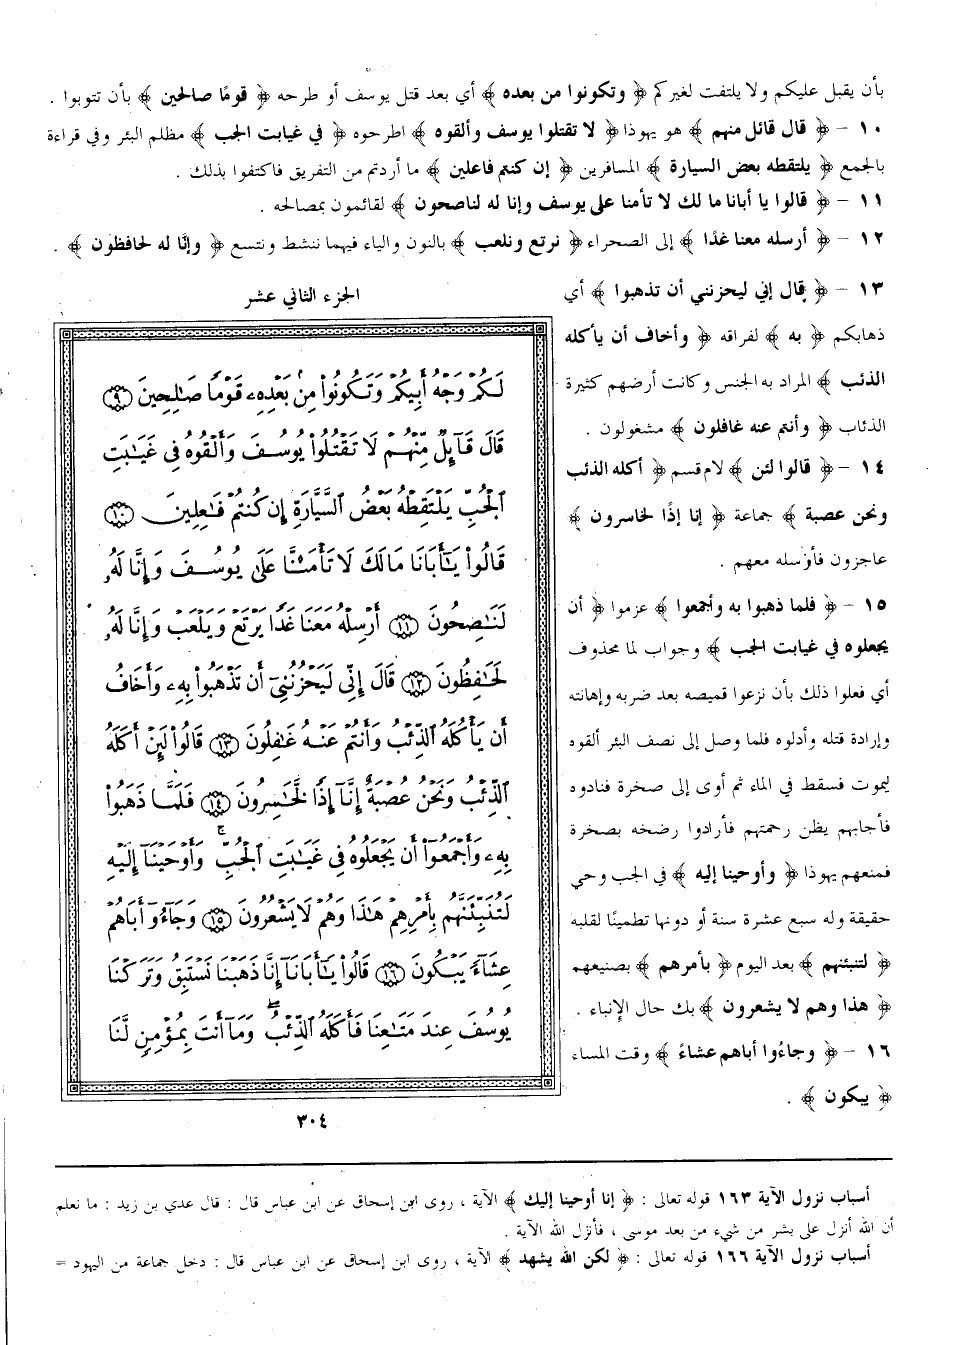 بأن يقبل عليكم ولا يلتفت لغيركم ﴿ وتكونوا من بعده ﴾ أي بعد قتل يوسف أو طرحه ﴿ قومًا صالحين ﴾ بأن تتوبوا .
١٠ - ﴿ قال قائل منهم ﴾ هو يهوذا ﴿ لا تقتلوا يوسف وألقوه ﴾ اطرحوه ﴿ في غيابت الجب ﴾ مظلم البئر وفي قراءة
بالجمع ﴿ يلتقطه بعض السيارة ﴾ المسافرين ﴿ إن كنتم فاعلين ﴾ ما أردتم من التفريق فاكتفوا بذلك .
١١ - ﴿ قالوا يا أبانا ما لك لا تأمنا على يوسف وإنا له لناصحون ﴾ لقائمون بمصالحه .
١٢ - ﴿ أرسله معنا غدًا ﴾ إلى الصحراء ﴿ نرتع ونلعب ﴾ بالنون والياء فيهما ننشط ونتسع ﴿ وإنَّا له لحافظون ﴾ .
١٣ - ﴿ قال إني ليحزنني أن تذهبوا ﴾ أي
ذهابكم ﴿ به ﴾ لفراقه ﴿ وأخاف أن يأكله
الذئب ﴾ المراد به الجنس وكانت أرضهم كثيرة
الذئاب ﴿ وأنتم عنه غافلون ﴾ مشغولون .
١٤ - ﴿ قالوا لئن ﴾ لام قسم ﴿ أكله الذئب
ونحن عصبة ﴾ جماعة ﴿ إنا إذًا لخاسرون ﴾
عاجزون فأرسله معهم .
١٥ - ﴿ فلما ذهبوا به وأجمعوا ﴾ عزموا ﴿ أن
يجعلوه في غيابت الجب ﴾ وجواب لما محذوف
أي فعلوا ذلك بأن نزعوا قميصه بعد ضربه وإهانته
وإرادة قتله وأدلوه فلما وصل إلى نصف البئر ألقوه
ليموت فسقط في الماء ثم أوى إلى صخرة فنادوه
فأجابهم يظن رحمتهم فأرادوا رضخه بصخرة
فمنعهم يهوذا ﴿ وأوحينا إليه ﴾ في الجب وحي
حقيقة وله سبع عشرة سنة أو دونها تطمينًا لقلبه
﴿ لتنبئنهم ﴾ بعد اليوم ﴿ بأمرهم ﴾ بصنيعهم
﴿ هذا وهم لا يشعرون ﴾ بك حال الإنباء .
١٦ - ﴿ وجاءُوا أباهم عشاءً ﴾ وقت المساء
﴿ يبكون ﴾ .
الجزء الثاني عشر
لَكُمْ وَجْهُ أَبِيكُمْ وَتَكُونُواْ مِنۢ بَعْدِهِۦ قَوْمًا صَٰلِحِينَ ٩
قَالَ قَآئِلٌ مِّنْهُمْ لَا تَقْتُلُواْ يُوسُفَ وَأَلْقُوهُ فِى غَيَٰبَتِ
ٱلْجُبِّ يَلْتَقِطْهُ بَعْضُ ٱلسَّيَّارَةِ إِن كُنتُمْ فَٰعِلِينَ ١٠
قَالُواْ يَٰٓأَبَانَا مَالَكَ لَا تَأْمَ۫نَّا عَلَىٰ يُوسُفَ وَإِنَّا لَهُۥ
لَنَٰصِحُونَ ١١ أَرْسِلْهُ مَعَنَا غَدًا يَرْتَعْ وَيَلْعَبْ وَإِنَّا لَهُۥ
لَحَٰفِظُونَ ١٢ قَالَ إِنِّى لَيَحْزُنُنِىٓ أَن تَذْهَبُواْ بِهِۦ وَأَخَافُ
أَن يَأْكُلَهُ ٱلذِّئْبُ وَأَنتُمْ عَنْهُ غَٰفِلُونَ ١٣ قَالُواْ لَئِنْ أَكَلَهُ
ٱلذِّئْبُ وَنَحْنُ عُصْبَةٌ إِنَّآ إِذًا لَّخَٰسِرُونَ ١٤ فَلَمَّا ذَهَبُواْ
بِهِۦ وَأَجْمَعُوٓاْ أَن يَجْعَلُوهُ فِى غَيَٰبَتِ ٱلْجُبِّ ۚ وَأَوْحَيْنَآ إِلَيْهِ
لَتُنَبِّئَنَّهُم بِأَمْرِهِمْ هَٰذَا وَهُمْ لَا يَشْعُرُونَ ١٥ وَجَآءُوٓ أَبَاهُمْ
عِشَآءً يَبْكُونَ ١٦ قَالُواْ يَٰٓأَبَانَآ إِنَّا ذَهَبْنَا نَسْتَبِقُ وَتَرَكْنَا
يُوسُفَ عِندَ مَتَٰعِنَا فَأَكَلَهُ ٱلذِّئْبُ ۖ وَمَآ أَنتَ بِمُؤْمِنٍ لَّنَا
٣٠٤
أسباب نزول الآية ١٦٣ قوله تعالى : ﴿ إنا أوحينا إليك ﴾ الآية ، روى ابن إسحاق عن ابن عباس قال : قال عدي بن زيد : ما نعلم
أن الله أنزل على بشر من شيء من بعد موسى ، فأنزل الله الآية .
أسباب نزول الآية ١٦٦ قوله تعالى : ﴿ لكن الله يشهد ﴾ الآية ، روى ابن إسحاق عن ابن عباس قال : دخل جماعة من اليهود =